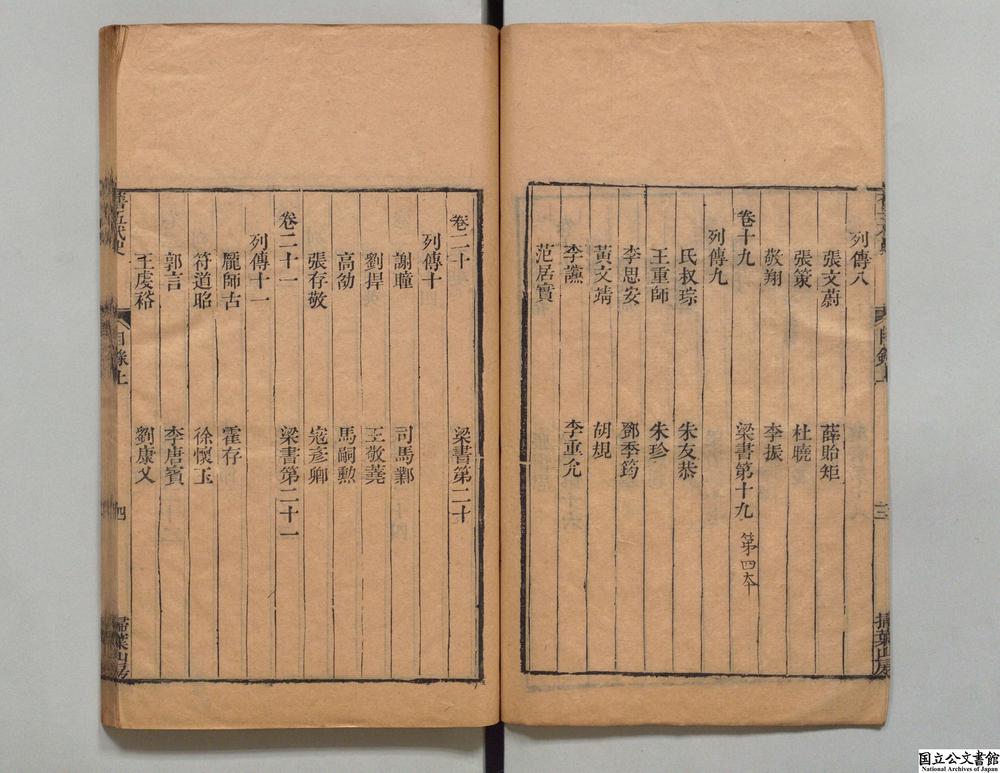 列傳八
張文蔚 薛貽矩
張策 杜曉
敬翔 李振
卷十九 梁書第十九 第四本
列傳九
氏叔琮 朱友恭
王重師 朱珍
李思安 鄧季筠
黃文靖 胡規
李讜 李重允
范居實
卷二十 梁書第二十
列傳十
謝瞳 司馬鄴
劉捍 王敬蕘
高劭 馬嗣勲
張存敬 寇彥卿
卷二十一 梁書第二十一
列傳十一
龎師古 霍存
符道昭 徐懷玉
郭言 李唐賓
王虔裕 劉康乂
舊五代史 目錄上 四 掃葉山房
国立公文書館
National Archives of Japan